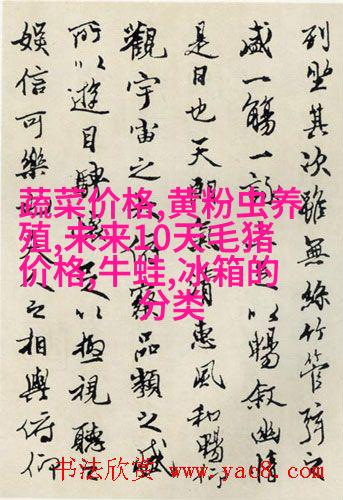 列坐其次雖無絲竹管弦之
盛一觴一詠以暢敘幽情
是日也天朗氣清惠風和暢仰
觀宇宙之俯察品類之盛
所以遊目騁足以極視聽之
娛信可樂人之相與俯仰
蔬菜价格,黄粉虫养
殖,未来10天毛猪
价格,牛蛙,冰箱的
分类
书法欣赏 www.yac8.com